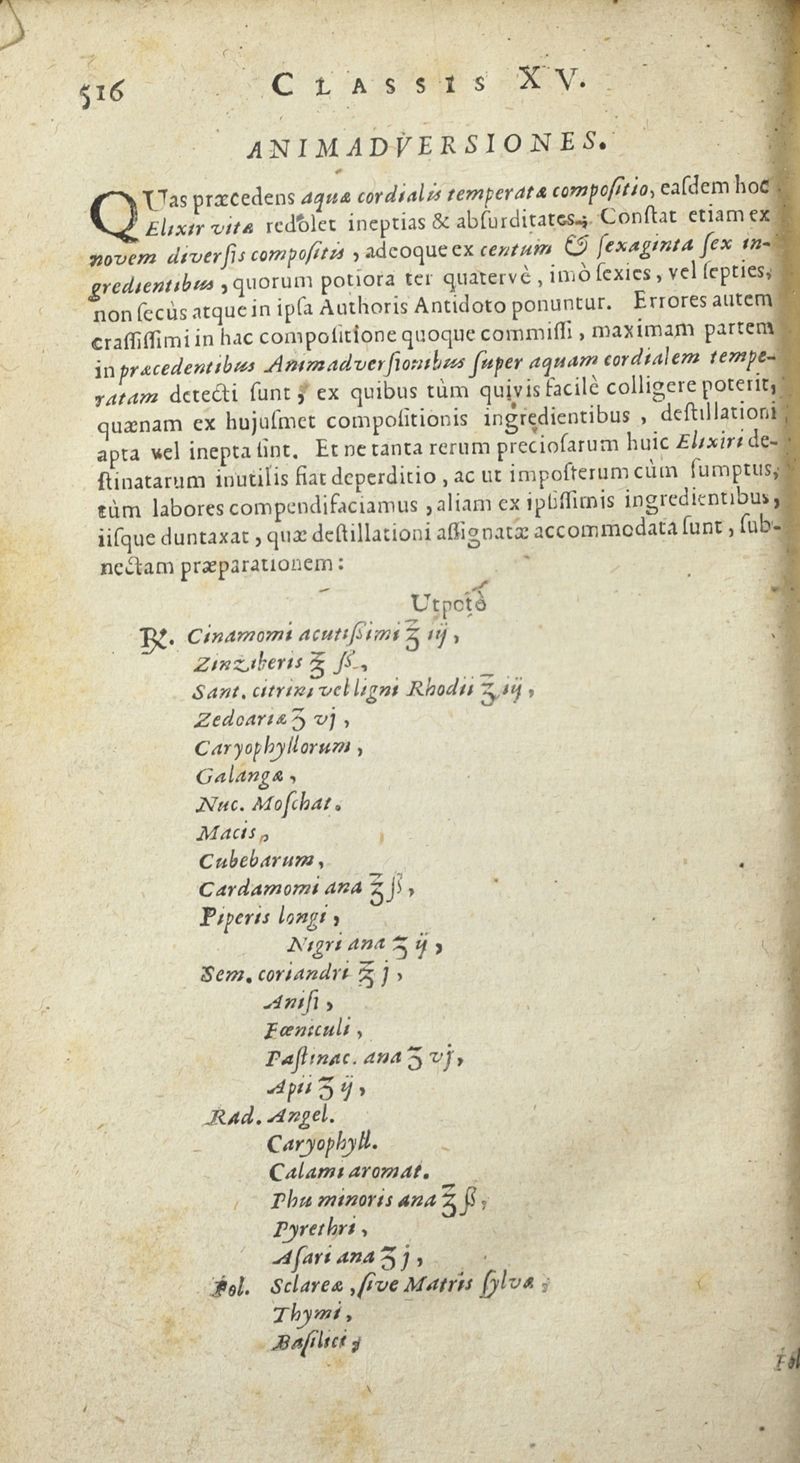 516 CLASSIS XV.
ANIMADVERSIONES.
QUas præcedens aquæ cordialis temperatæ compoſitio, eaſdem hoc
Elixir vitæ redolet ineptias & abſurditates. Conſtat etiam ex
novem diverſis compoſitis, adeoque ex centum & ſexaginta ſex in-
gredientibus, quorum potiora ter quaterve, imò ſexies, vel ſepties,
non ſecùs atque in ipſa Authoris Antidoto ponuntur. Errores autem
craſſiſſimi in hac compoſitione quoque commiſſi, maximam partem
in præcedentibus Animadverſionibus ſuper aquam cordialem tempe-
ratam detecti ſunt; ex quibus tùm quivis facilè colligere poterit,
quænam ex hujuſmet compoſitionis ingredientibus, deſtillationi
apta vel inepta ſint. Et ne tanta rerum precioſarum huic Elixiri de-
ſtinatarum inutilis fiat deperditio, ac ut impoſterum cùm ſumptus,
tùm labores compendifaciamus, aliam ex ipſiſſimis ingredientibus,
iiſque duntaxat, quæ deſtillationi aſſignatæ accommodata ſunt, ſub-
nectam præparationem:
Utpotè
℞. Cinamomi acutiſſimi ℥ iij,
Zinziberis ℥ jß,
Sant. citrini vel ligni Rhodii ℥ iij,
Zedoariæ ʒ vj,
Caryophyllorum,
Galangæ,
Nuc. Moſchat.
Macis,
Cubebarum,
Cardamomi ana ℥ jß,
Piperis longi,
Nigri ana ℥ ij,
Sem. coriandri ℥ j,
Aniſi,
Fœniculi,
Paſtinac. ana ʒ vj,
Apii ʒ ij,
Rad. Angel.
Caryophyll.
Calami aromat.
Phu minoris ana ℥ ß,
Pyrethri,
Aſari ana ʒ j,
Fol. Sclareæ, ſive Matris ſylvæ,
Thymi,
Baſilici,
Fol